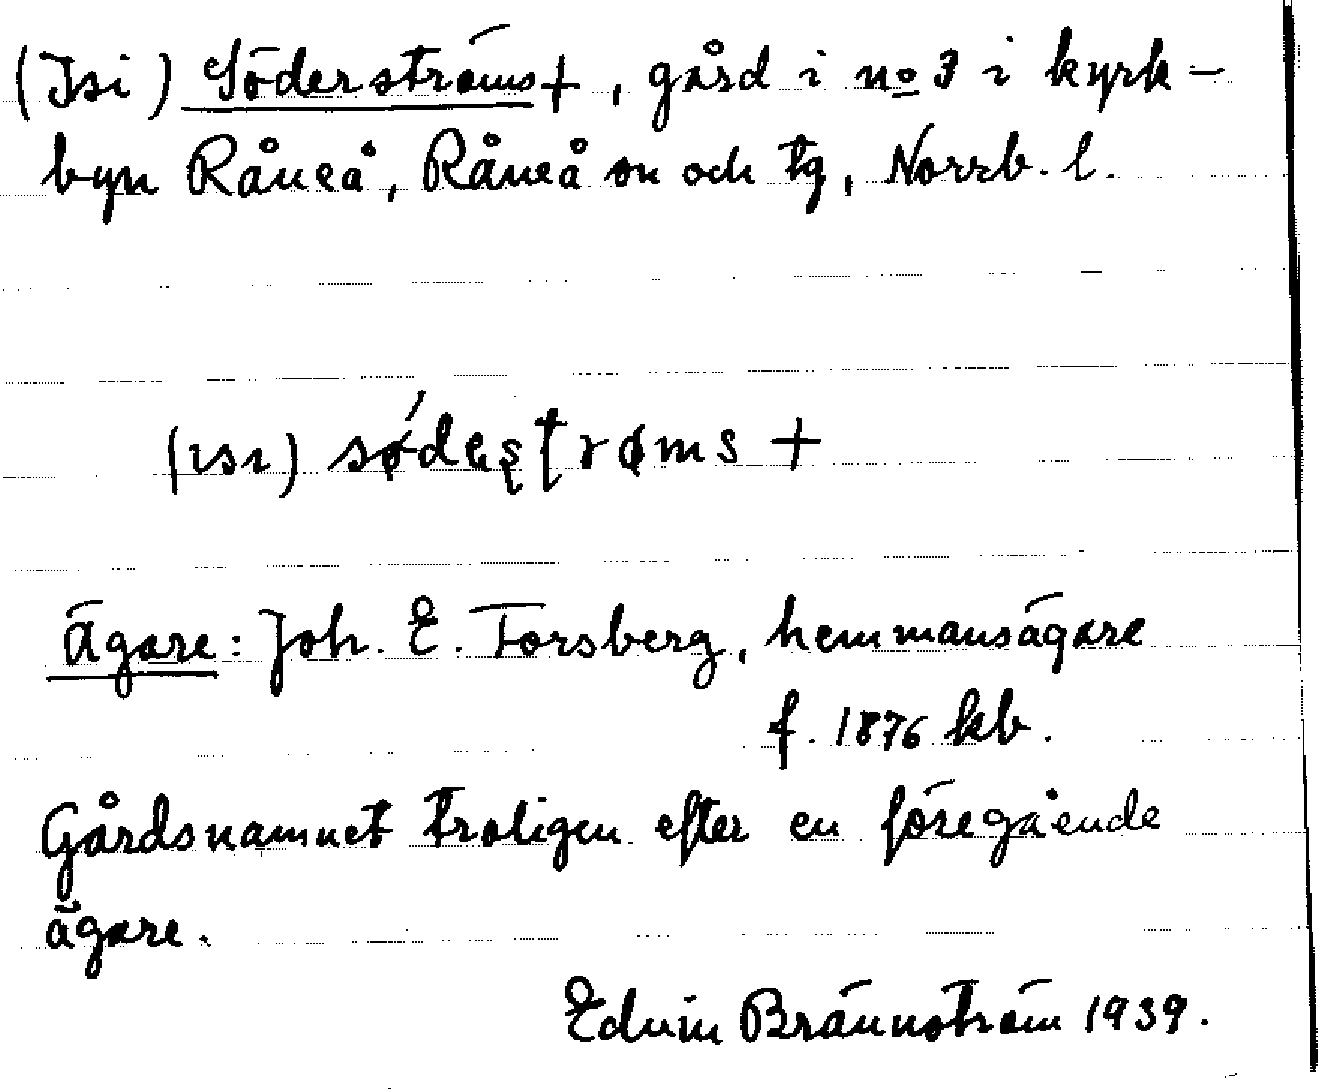 (Isi) Söderströms +, gård i nº 3 i kyrk-
byn Råneå, Råneå sn och tg, Norrb. l.
(ısı) sǿdeʂʈrøms +
Ägare: Joh. E. Forsberg, hemmansägare
f. 1876 kb.
Gårdsnamnet troligen efter en föregående
ägare.
Edwin Brännström 1939.